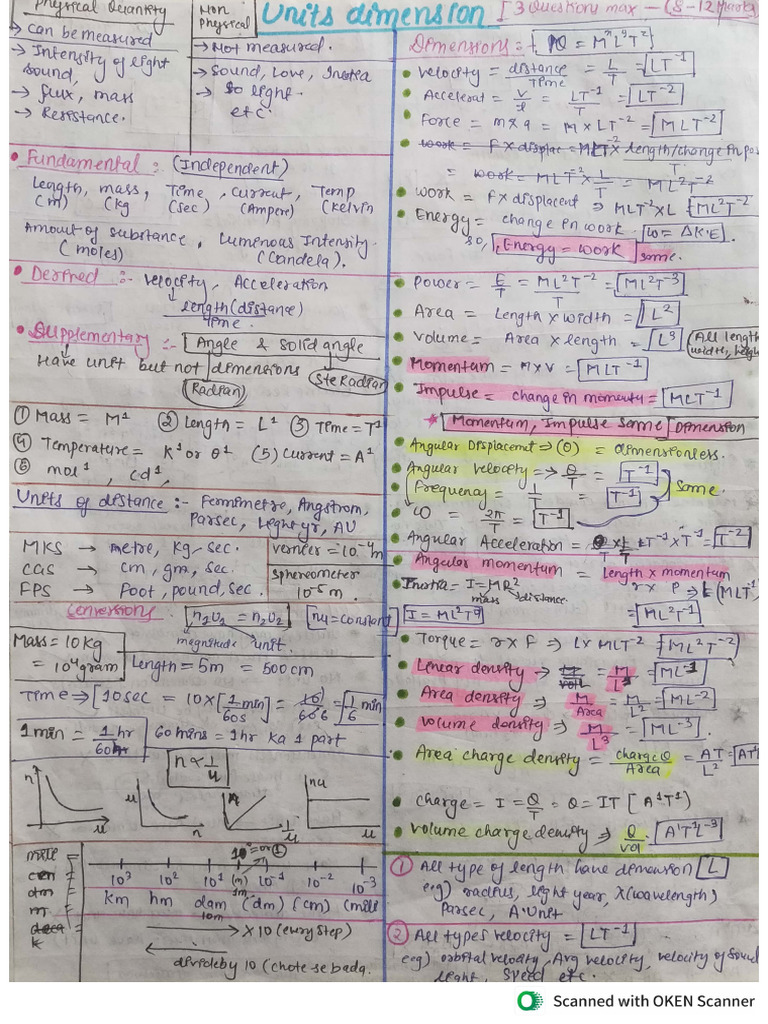 Physical Quantity
→ can be measured
→ Intensity of light
sound,
→ flux, mass
→ Resistance.
Non
Physical
→ Not measured.
→ Sound, Love, Inertia
→ so light.
etc.
Units dimension [3 Questions max - (8-12 Marks)
• Fundamental :- (Independent)
Length, mass, Time, Current, Temp
(m) (kg) (sec) (Ampere) (Kelvin
Amount of substance, Lumenous Intensity.
(moles) (Candela).
• Derived :- velocity, Acceleration
Length (distance)
time.
• Supplementary :- Angle & solid angle
Have unit but not dimensions
(Radian) (SteRadian)
① Mass = M¹ ② Length = L¹ ③ Time = T¹
④ Temperature = K¹ or θ¹ (5) Current = A¹
⑥ mol¹, cd¹,
Units of distance :- Fermimetre, Angstrom,
Parsec, Light yr, AU
MKS → metre, Kg - sec.
CGS → cm, gm, sec.
FPS → Foot, pound, sec.
vernier = 10⁻⁴m
sphereometer
10⁻⁵m.
Conversions n₁U₁ = n₂U₂ [nu = constant]
magnitude unit.
Mass = 10 Kg
= 10⁴ gram
Length = 5m = 500cm
Time → [10sec = 10x[1min/60s] = 10/60 = 1/6 min
1min = 1hr/60 60 mins = 1hr ka 1 part
n ∝ 1/u
n u
u n
n 1/u
nu u
10⁰ = or ①
10³ 10² 10¹ (m) 10⁻¹ 10⁻² 10⁻³
km hm dam (dm) (cm) (mili
10m
→ X 10 (every step)
divide by 10 (chote se bada.
Dimensions :- [PQ = MˣLʸTᶻ]
• velocity = distance/Time = L/T = LT⁻¹
• Accelerat = V/t = LT⁻¹/T = LT⁻²
• Force = m x a = M x LT⁻² = MLT⁻²
• work = F x displacent ⇒ MLT⁻² x L = ML²T⁻²
• Energy = change in work. [W = ΔK.E].
so, Energy = work same.
• Power = E/T = ML²T⁻²/T = ML²T⁻³
• Area = Length x width = L²
• Volume = Area x length = L³ (All length
width, height
• Momentum = M x V = MLT⁻¹
• Impulse = change in momentu = MLT⁻¹
★ Momentum, Impulse same Dimension
• Angular Displacemet ⇒ (θ) = dimensionless.
• Angular velocity ⇒ θ/T = T⁻¹
Frequency = 1/T = T⁻¹ same.
• ω = 2π/T = T⁻¹
• Angular Acceleration = T⁻¹ x T⁻¹ = T⁻²
• Angular momentum = Length x momentum
r x P ⇒ L (MLT⁻¹)
= ML²T⁻¹
• Inertia = I = MR²
mass distance.
I = ML²T⁰
• Torque = r x F ⇒ L x MLT⁻² = ML²T⁻²
• Linear density ⇒ M/L = ML⁻¹
• Area density ⇒ M/Area = M/L² = ML⁻²
• Volume density ⇒ M/L³ = ML⁻³.
• Area charge density = charge Q/Area = AT/L² =
• Charge = I = Q/T = Q = IT [A¹T¹]
• Volume charge density ⇒ Q/vol = A¹T¹L⁻³
① All type of length have dimension L
eg) radius, light year, X(wavelength)
Parsec, A.Unit
② All types velocity = LT⁻¹
eg) orbital velocity, Avg velocity, velocity of sound
light, speed etc.
Scanned with OKEN Scanner